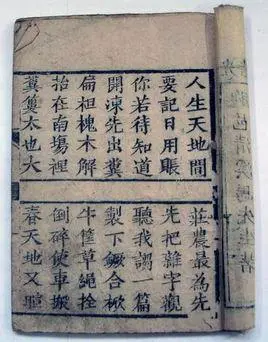 人生天地間 莊農最為先
要記日用賬 先把雜字觀
你若待知道 聽我謅一篇
開凍先出糞 製下鐝合杴
扁担槐木解 牛筐草繩拴
抬在南場裡 倒碎使車搬
糞簍太也大 春天地又喧